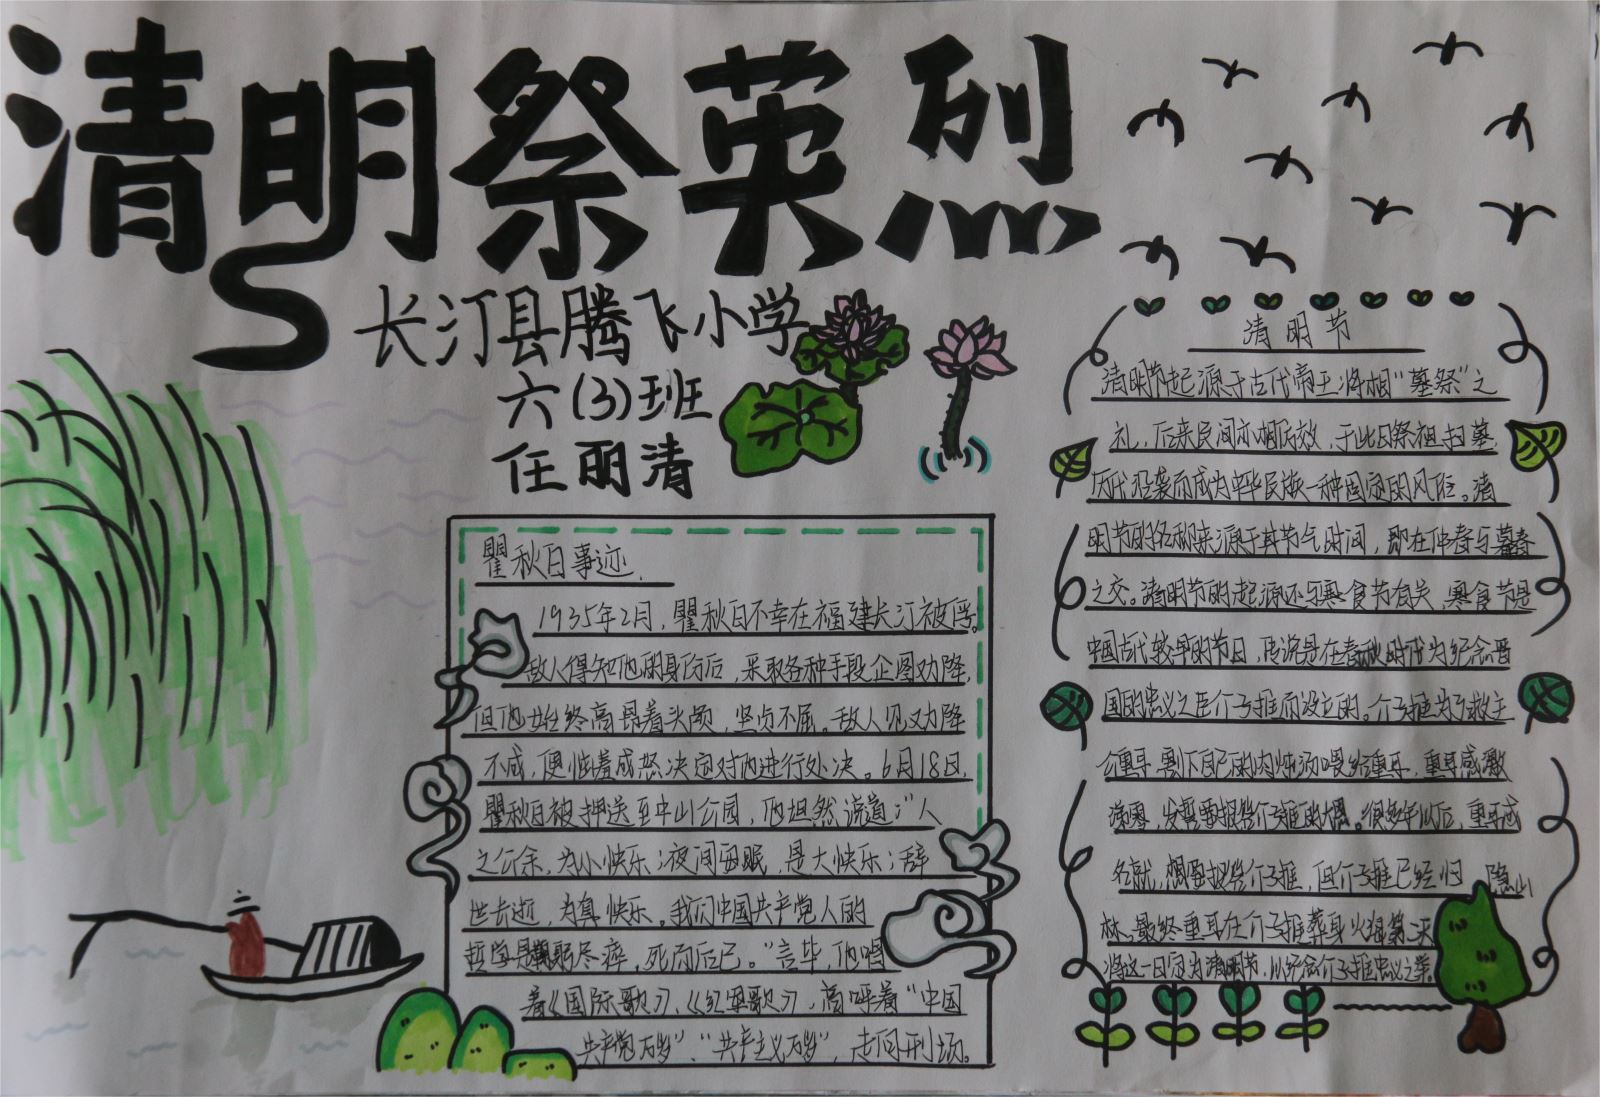 清明祭英烈
长汀县腾飞小学
六(3)班
任丽清
瞿秋白事迹
1935年2月,瞿秋白不幸在福建长汀被俘。
敌人得知他的身份后,采取各种手段企图劝降,
但他始终高昂着头颅,坚贞不屈。敌人见劝降
不成,便恼羞成怒决定对内进行处决。6月18日,
瞿秋白被押送至中山公园,他坦然说道:“人
之公余,为小快乐;夜间安眠,是大快乐;辞
世长逝,为真快乐。我们中国共产党人的
哲学是鞠躬尽瘁,死而后已。”言毕,他唱
着《国际歌》、《红军歌》,高呼着“中国
共产党万岁”、“共产主义万岁”,走向刑场。
清明节
清明节起源于古代帝王将相“墓祭”之
礼,后来民间亦相仿效,于此日祭祖扫墓,
历代沿袭而成为中华民族一种固定的风俗。清
明节的名称来源于其节气时间,即在仲春与暮春
之交。清明节的起源还与寒食节有关,寒食节是
中国古代较早的节日,传说是在春秋时代为纪念晋
国的忠义之臣介子推而设立的。介子推为了救主
公重耳,割下自己的肉炖汤喂给重耳,重耳感激
涕零,发誓要报答介子推的大恩。很多年以后,重耳成
名就,想要报答介子推,但介子推已经归隐山
林。最终重耳在介子推葬身火海第二天
将这一日定为清明节,以纪念介子推忠义之举。